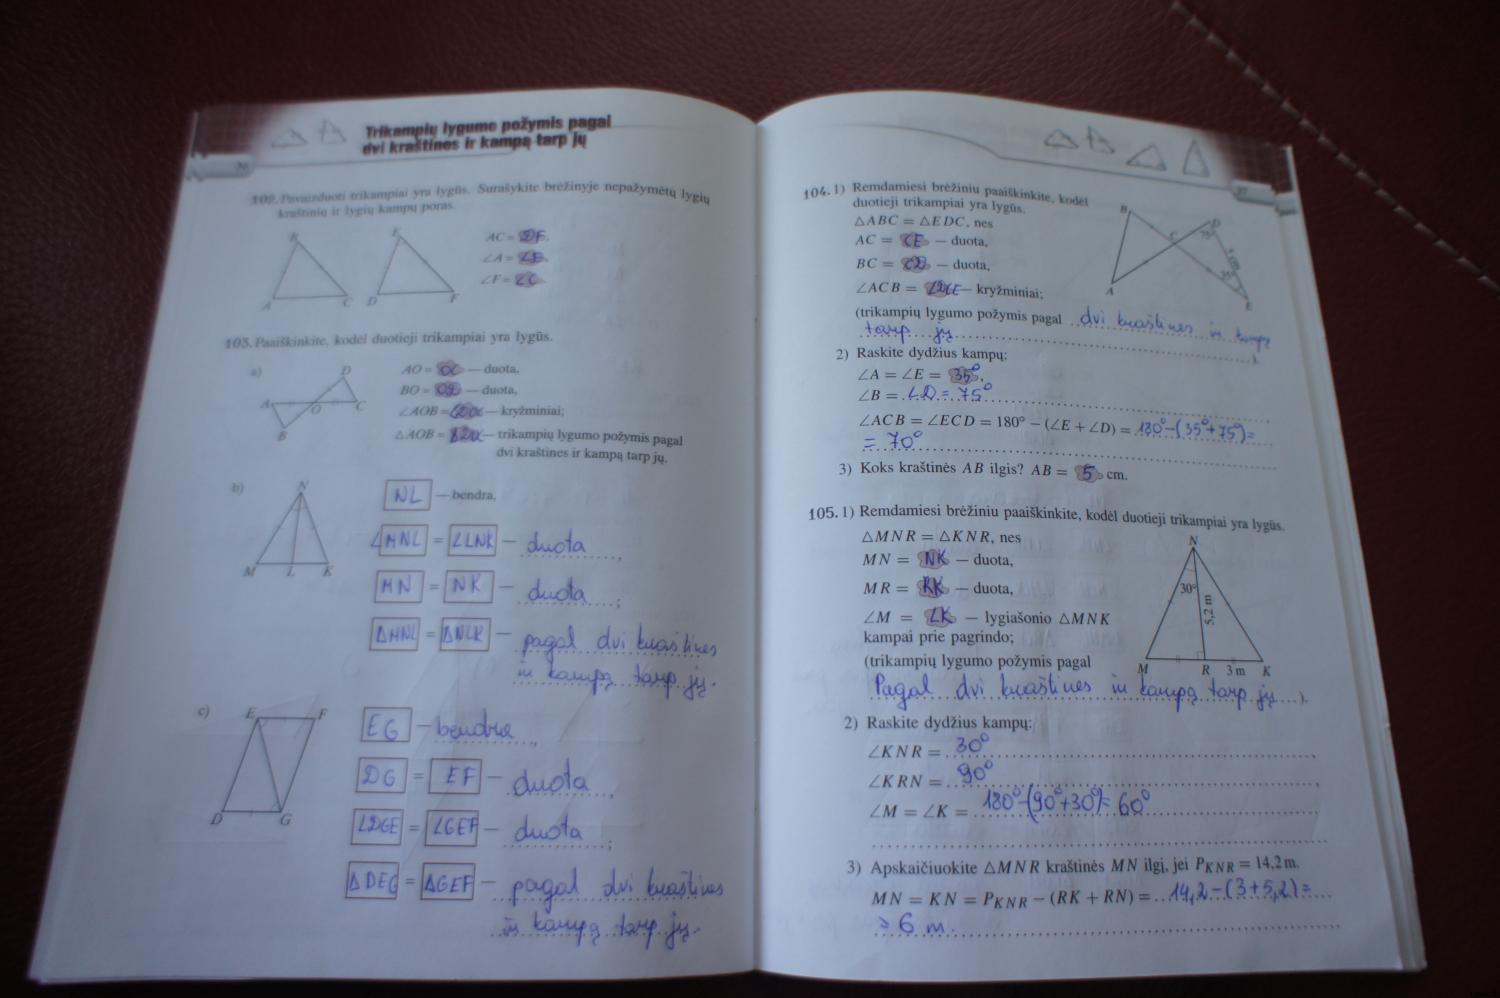 Trikampių lygumo požymis pagal
dvi kraštines ir kampą tarp jų
26
102. Pavaizduoti trikampiai yra lygūs. Surašykite brėžinyje nepažymėtų lygių
kraštinių ir lygių kampų poras.
B
A
C
E
D
F
AC = DF,
∠A = ∠D,
∠F = ∠C
103. Paaiškinkite, kodėl duotieji trikampiai yra lygūs.
a)
A
B
O
D
C
AO = OC — duota,
BO = OD — duota,
∠AOB = ∠DOC — kryžminiai;
△AOB = — trikampių lygumo požymis pagal
dvi kraštines ir kampą tarp jų.
b)
N
M
L
K
NL — bendra,
∠MNL = ∠LNK — duota,
MN = NK — duota;
△MNL = △NLK — pagal dvi kraštines
ir kampą tarp jų.
c)
E
F
D
G
EG — bendra,
DG = EF — duota,
∠DGE = ∠GEF — duota;
△DEG = △GEF — pagal dvi kraštines
ir kampą tarp jų.
27
104. 1) Remdamiesi brėžiniu paaiškinkite, kodėl
duotieji trikampiai yra lygūs.
△ABC = △EDC, nes
AC = CE — duota,
BC = CD — duota,
∠ACB = ∠DCE — kryžminiai;
(trikampių lygumo požymis pagal dvi kraštines ir kampą
tarp jų).
B
D
C
75°
5 cm
35°
A
E
2) Raskite dydžius kampų:
∠A = ∠E = 35°,
∠B = ∠D = 75°
∠ACB = ∠ECD = 180° − (∠E + ∠D) = 180°−(35°+75°)=
= 70°
3) Koks kraštinės AB ilgis? AB = 5 cm.
105. 1) Remdamiesi brėžiniu paaiškinkite, kodėl duotieji trikampiai yra lygūs.
△MNR = △KNR, nes
MN = NK — duota,
MR = RK — duota,
∠M = ∠K — lygiašonio △MNK
kampai prie pagrindo;
(trikampių lygumo požymis pagal
Pagal dvi kraštines ir kampą tarp jų).
N
30°
5,2 m
M
R
3 m
K
2) Raskite dydžius kampų:
∠KNR = 30°,
∠KRN = 90°,
∠M = ∠K = 180°−(90°+30°)= 60°
3) Apskaičiuokite △MNR kraštinės MN ilgį, jei PKNR = 14,2 m.
MN = KN = PKNR − (RK + RN) = 14,2−(3+5,2)=
= 6 m.